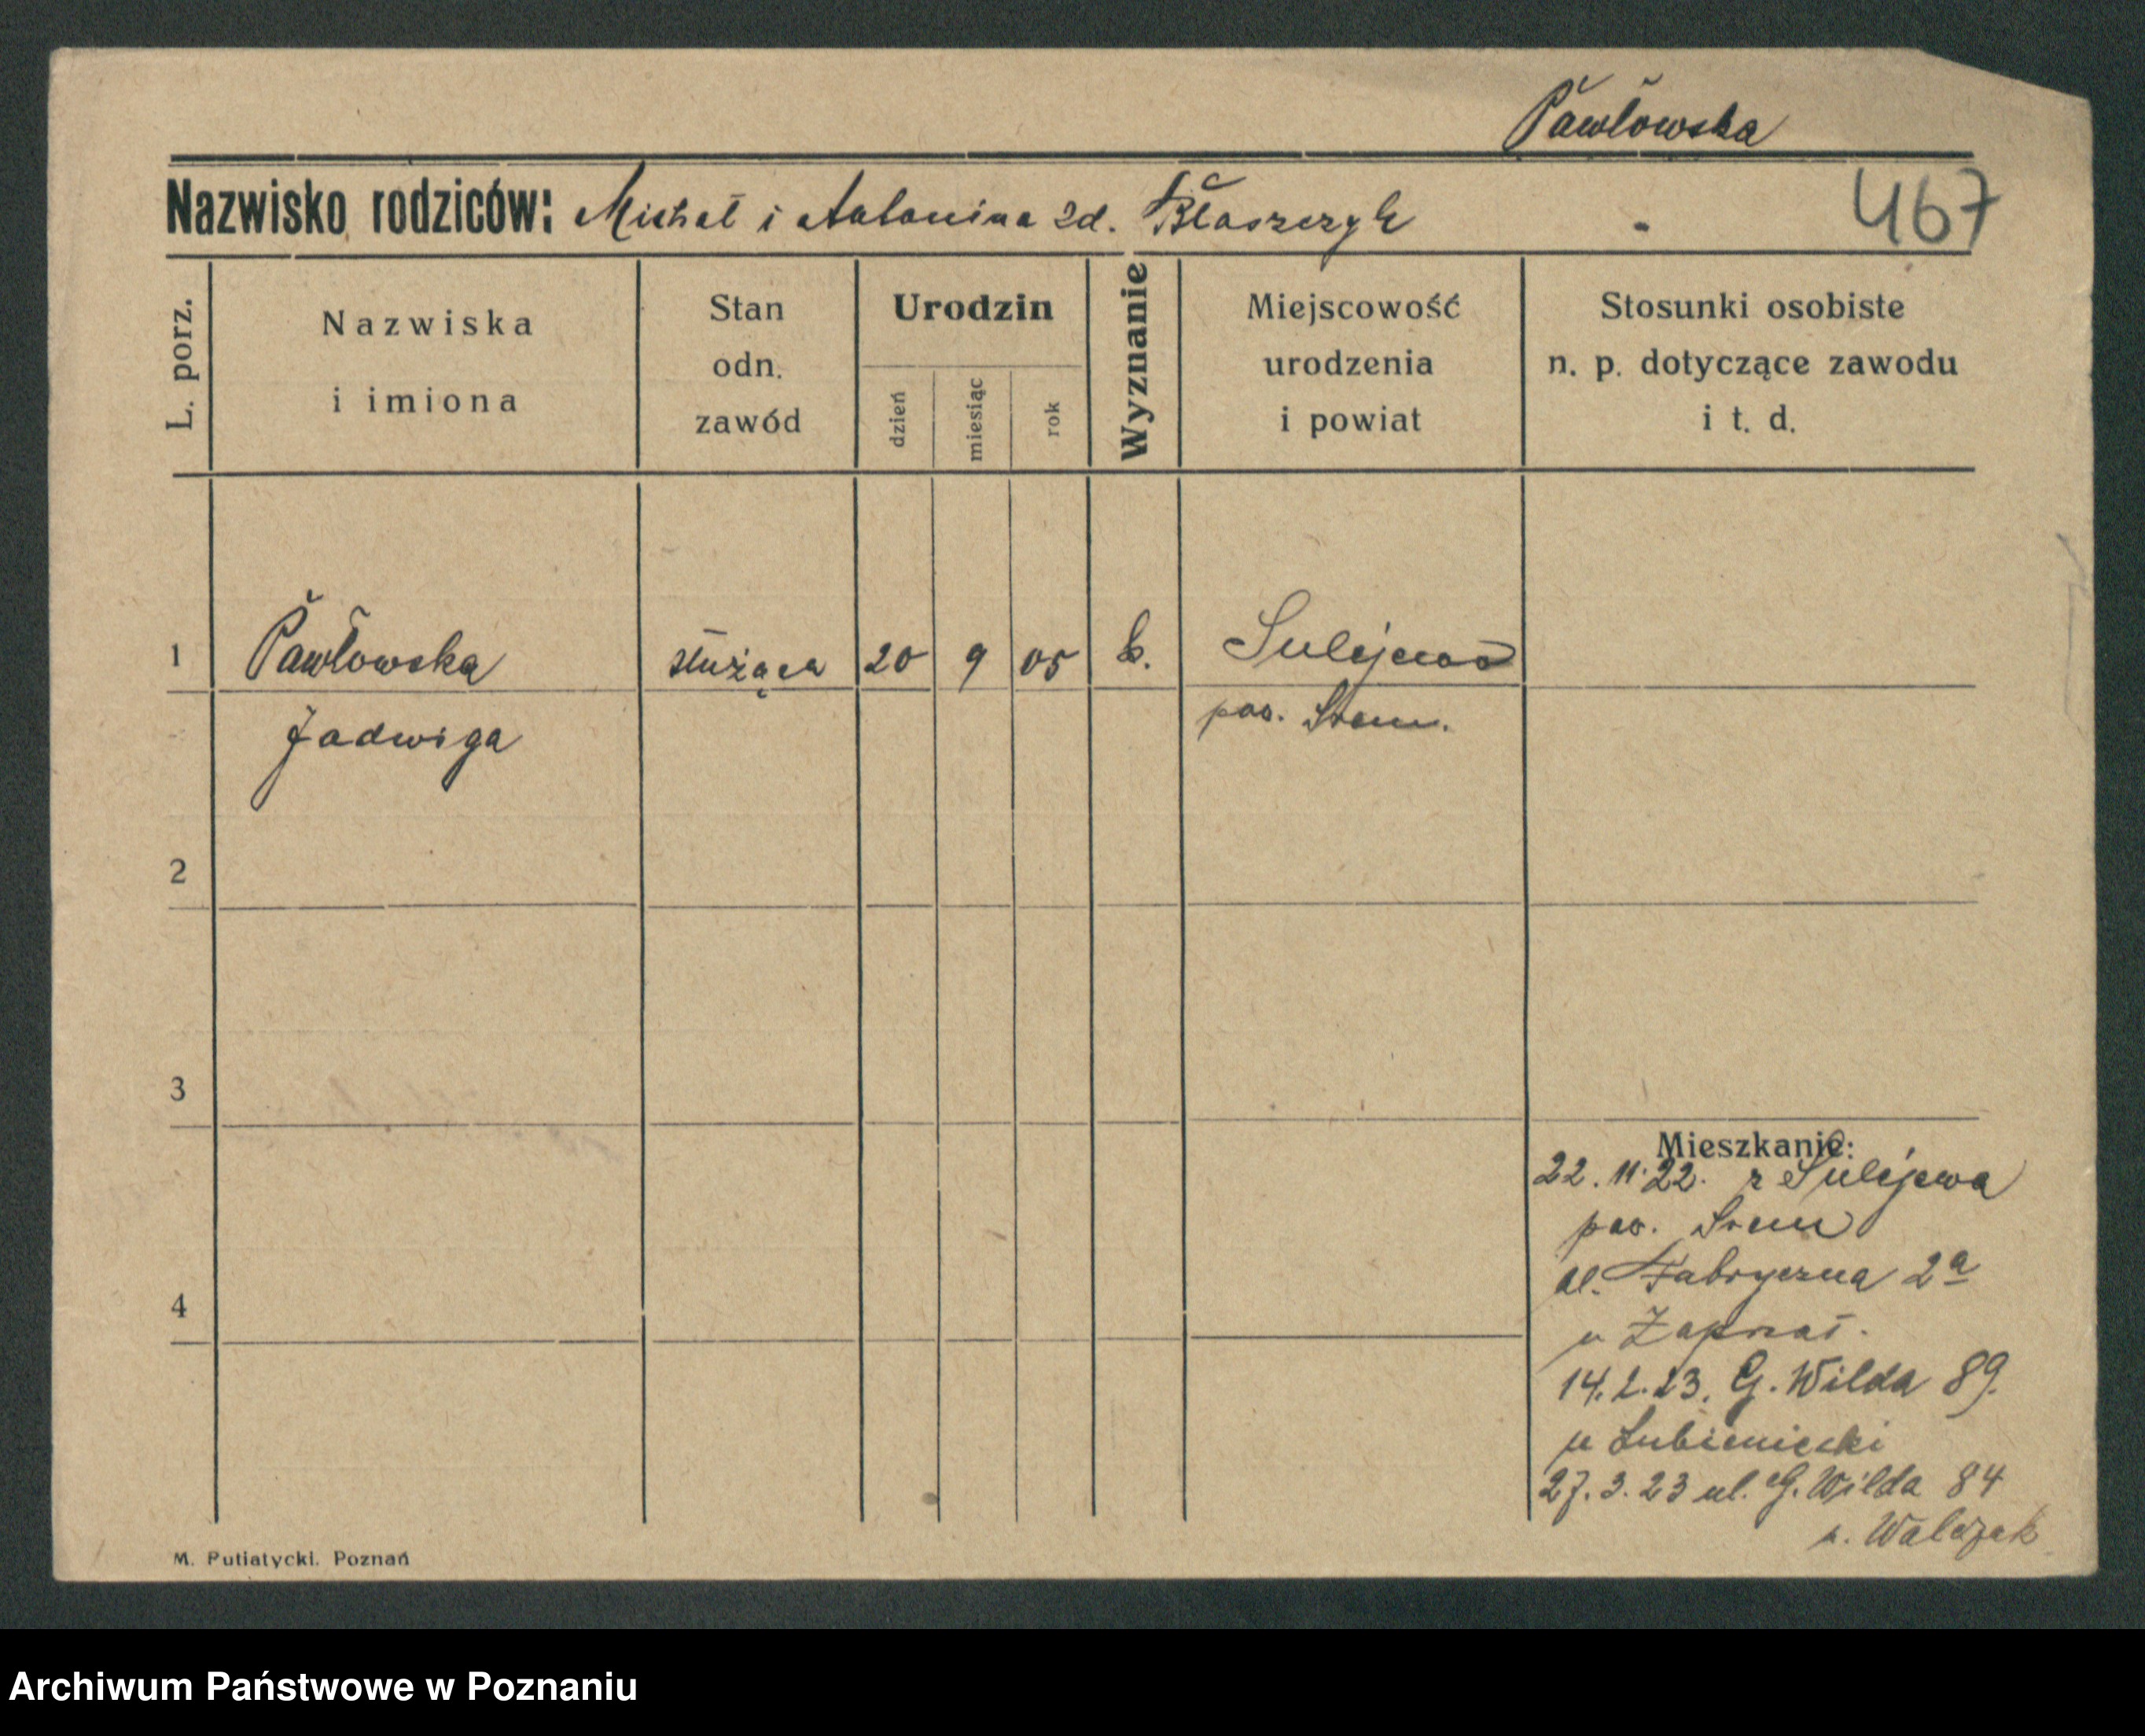 Pawłowska
Nazwisko rodziców: Michał i Antonina zd. Błaszczyk
467
L. porz.
Nazwiska
i imiona
Stan
odn.
zawód
Urodzin
dzień
miesiąc
rok
Wyznanie
Miejscowość
urodzenia
i powiat
Stosunki osobiste
n. p. dotyczące zawodu
i t. d.
1 Pawłowska służąca 20 9 05 k. Sulejewo
Jadwiga pow. Śrem.
2
3
4
Mieszkanie:
22.11.22. z Sulejewa
pow. Śrem
ul. Fabryczna 2a
u
14.2.23. G. Wilda 89.
u Lubieniecki
27.3.23 ul. G. Wilda 84
u. Walczak
M. Putiatycki. Poznań
Archiwum Państwowe w Poznaniu